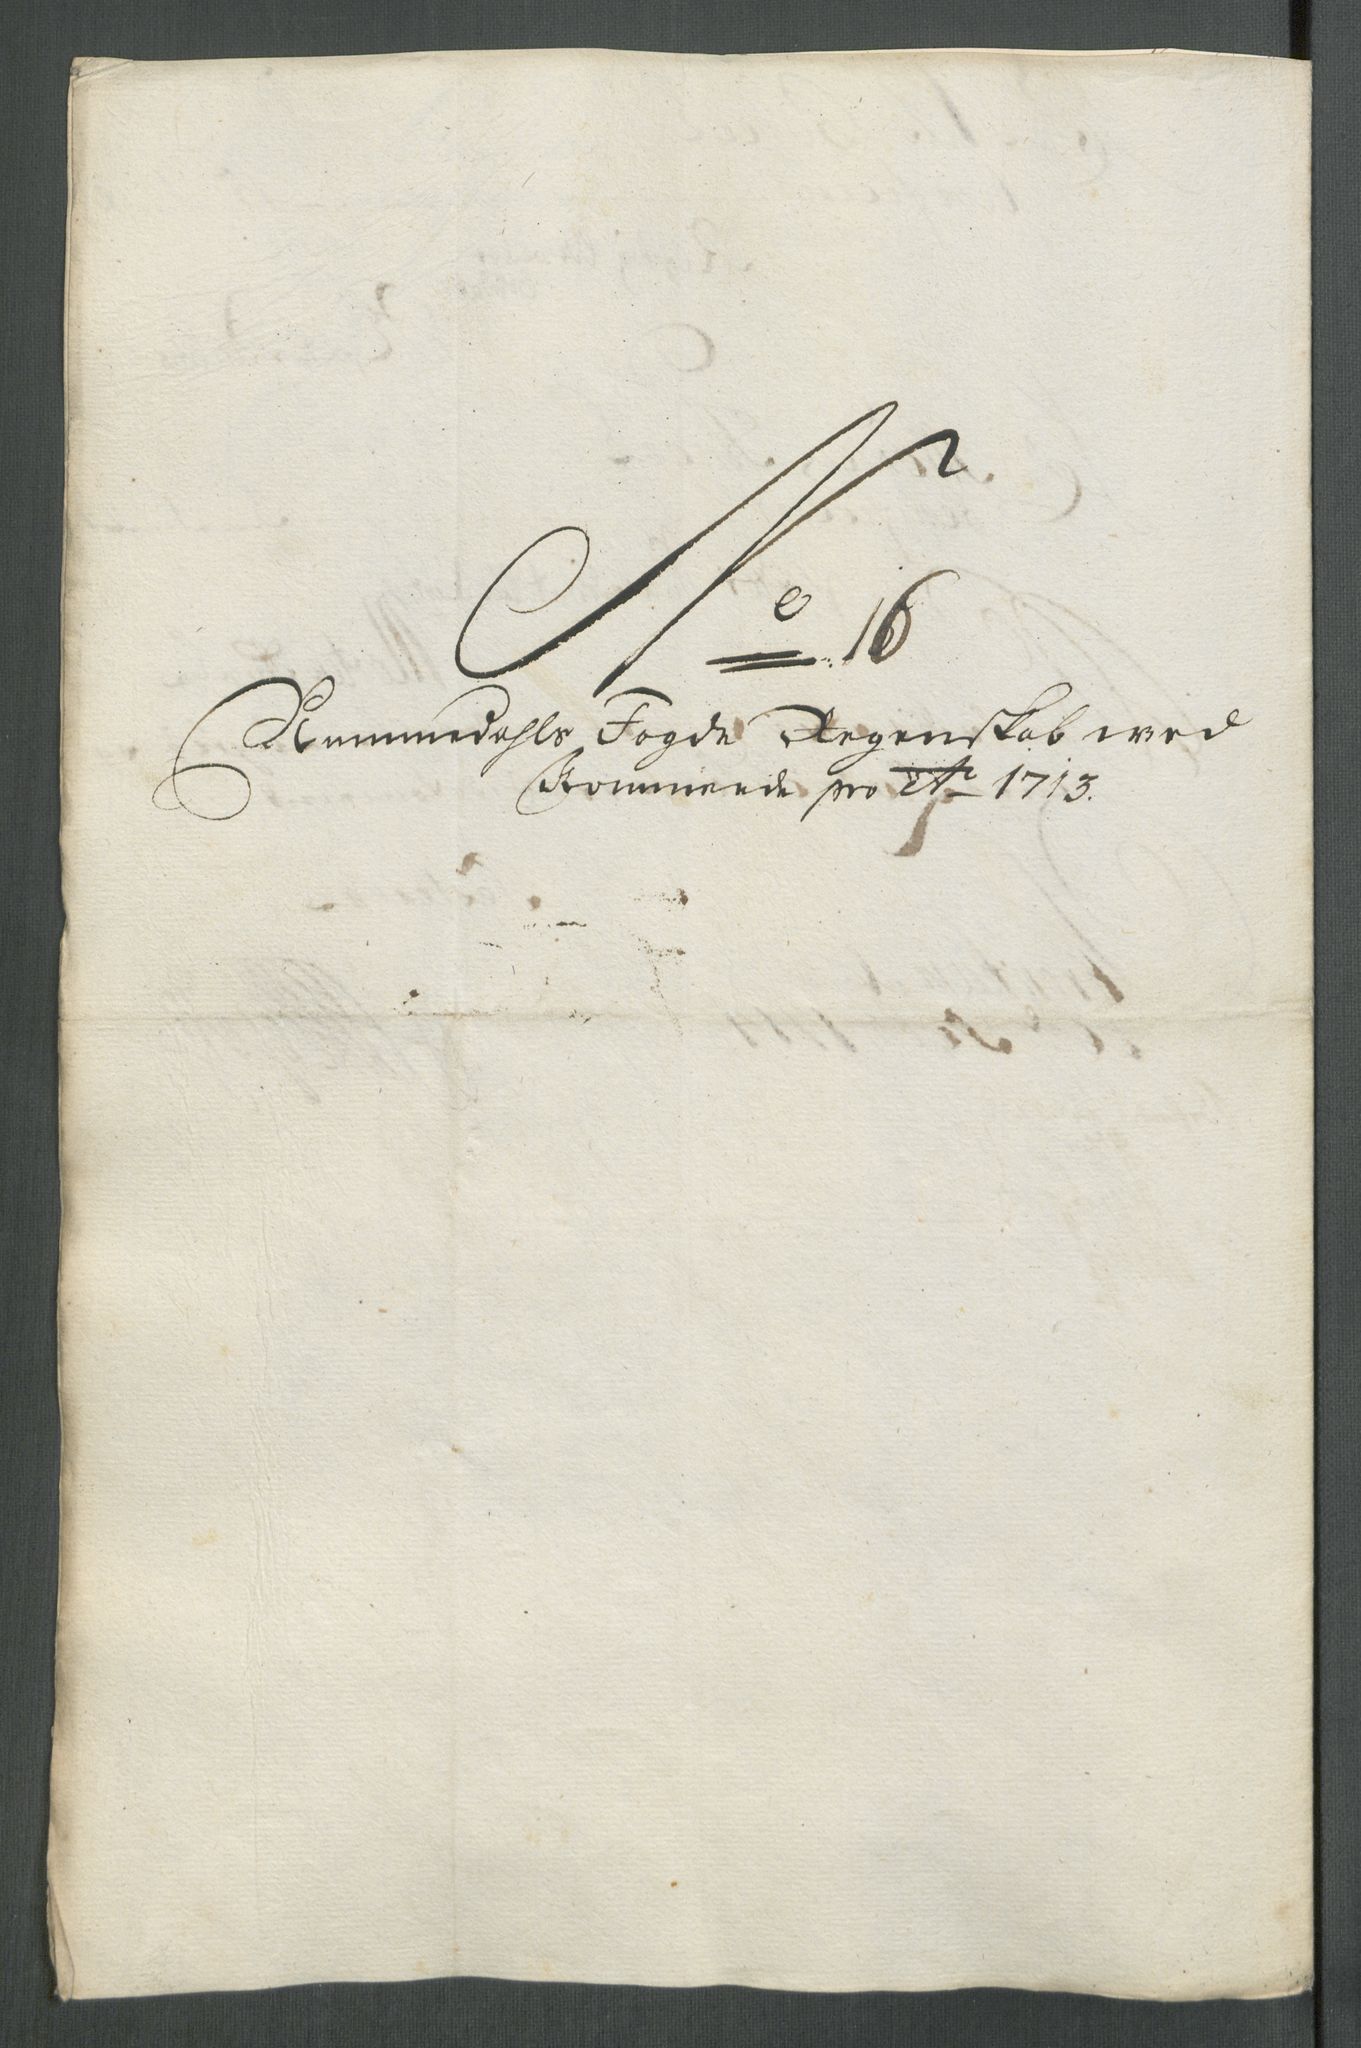 No 16
Nummedahls Fogde Regenskab wed
Kommende pro Ao 1713.